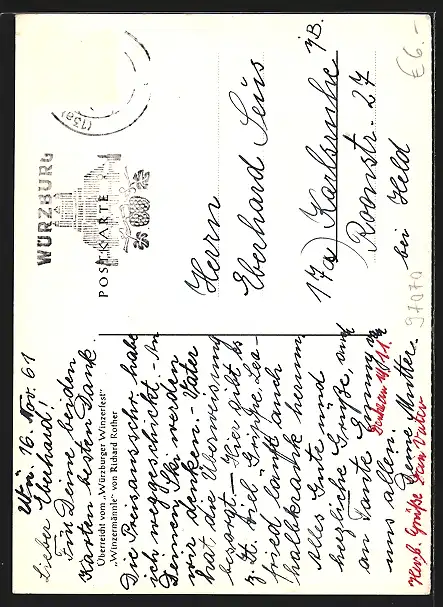 Wü. 16. Nov. 61
Lieber Eberhard!
Für Deine beiden
Karten besten Dank.
Überreicht vom „Würzburger Winzerfest"
„Winzermännle" von Richard Rother
Die Reiseausschr. habe
ich weggeschickt. - An
Deinen Ski werden
wir denken. - Vater
hat die Überweisung
besorgt. - Hier gibt es
z. Zt. viel Grippe,
fried lauft auch
halbkrank herum
Alles Gute und
herzliche Grüße, auch
an Tante Emmy
uns allen. Deine Mutter.
Herzl. Grüße Dein Vater
WÜRZBURG
(13a)
POSTKARTE
Herrn
Eberhard Seüs
17a) Karlsruhe i/B.
Roonstr. 27
bei Held
97070
€6.-